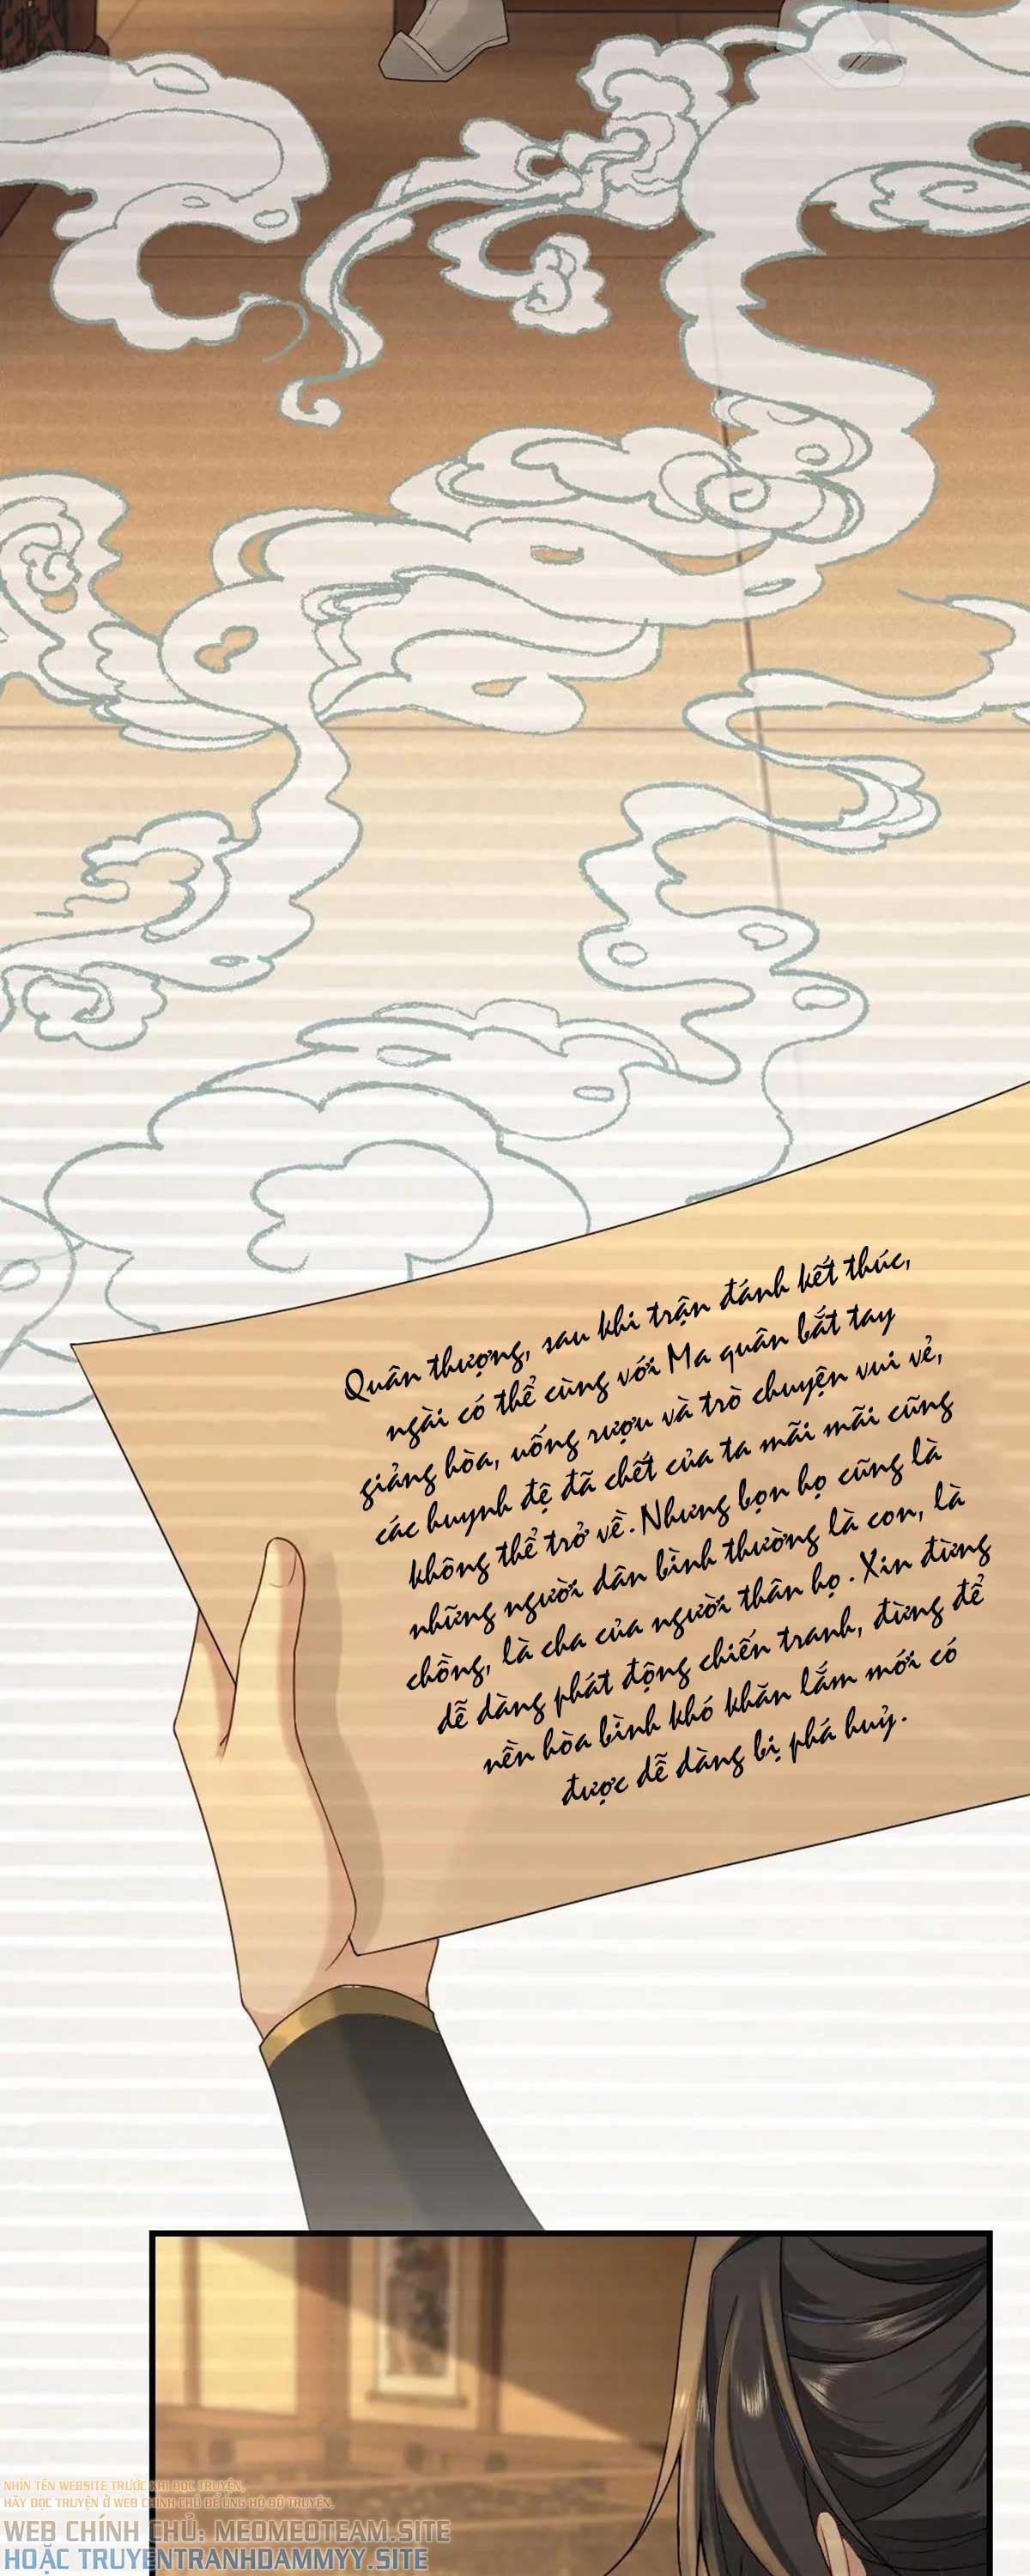 Quân thượng, sau khi trận đánh kết thúc,
ngài có thể cùng với Ma quân bắt tay
giảng hòa, uống rượu và trò chuyện vui vẻ,
các huynh đệ đã chết của ta mãi mãi cũng
không thể trở về. Nhưng bọn họ cũng là
những người dân bình thường là con, là
chồng, là cha của người thân họ. Xin đừng
dễ dàng phát động chiến tranh, đừng để
nền hòa bình khó khăn lắm mới có
được dễ dàng bị phá huỷ.
NHÌN TÊN WEBSITE TRƯỚC KHI ĐỌC TRUYỆN.
HÃY ĐỌC TRUYỆN Ở WEB CHÍNH CHỦ ĐỂ ỦNG HỘ BỘ TRUYỆN.
WEB CHÍNH CHỦ: MEOMEOTEAM.SITE
HOẶC TRUYENTRANHDAMMYY.SITE